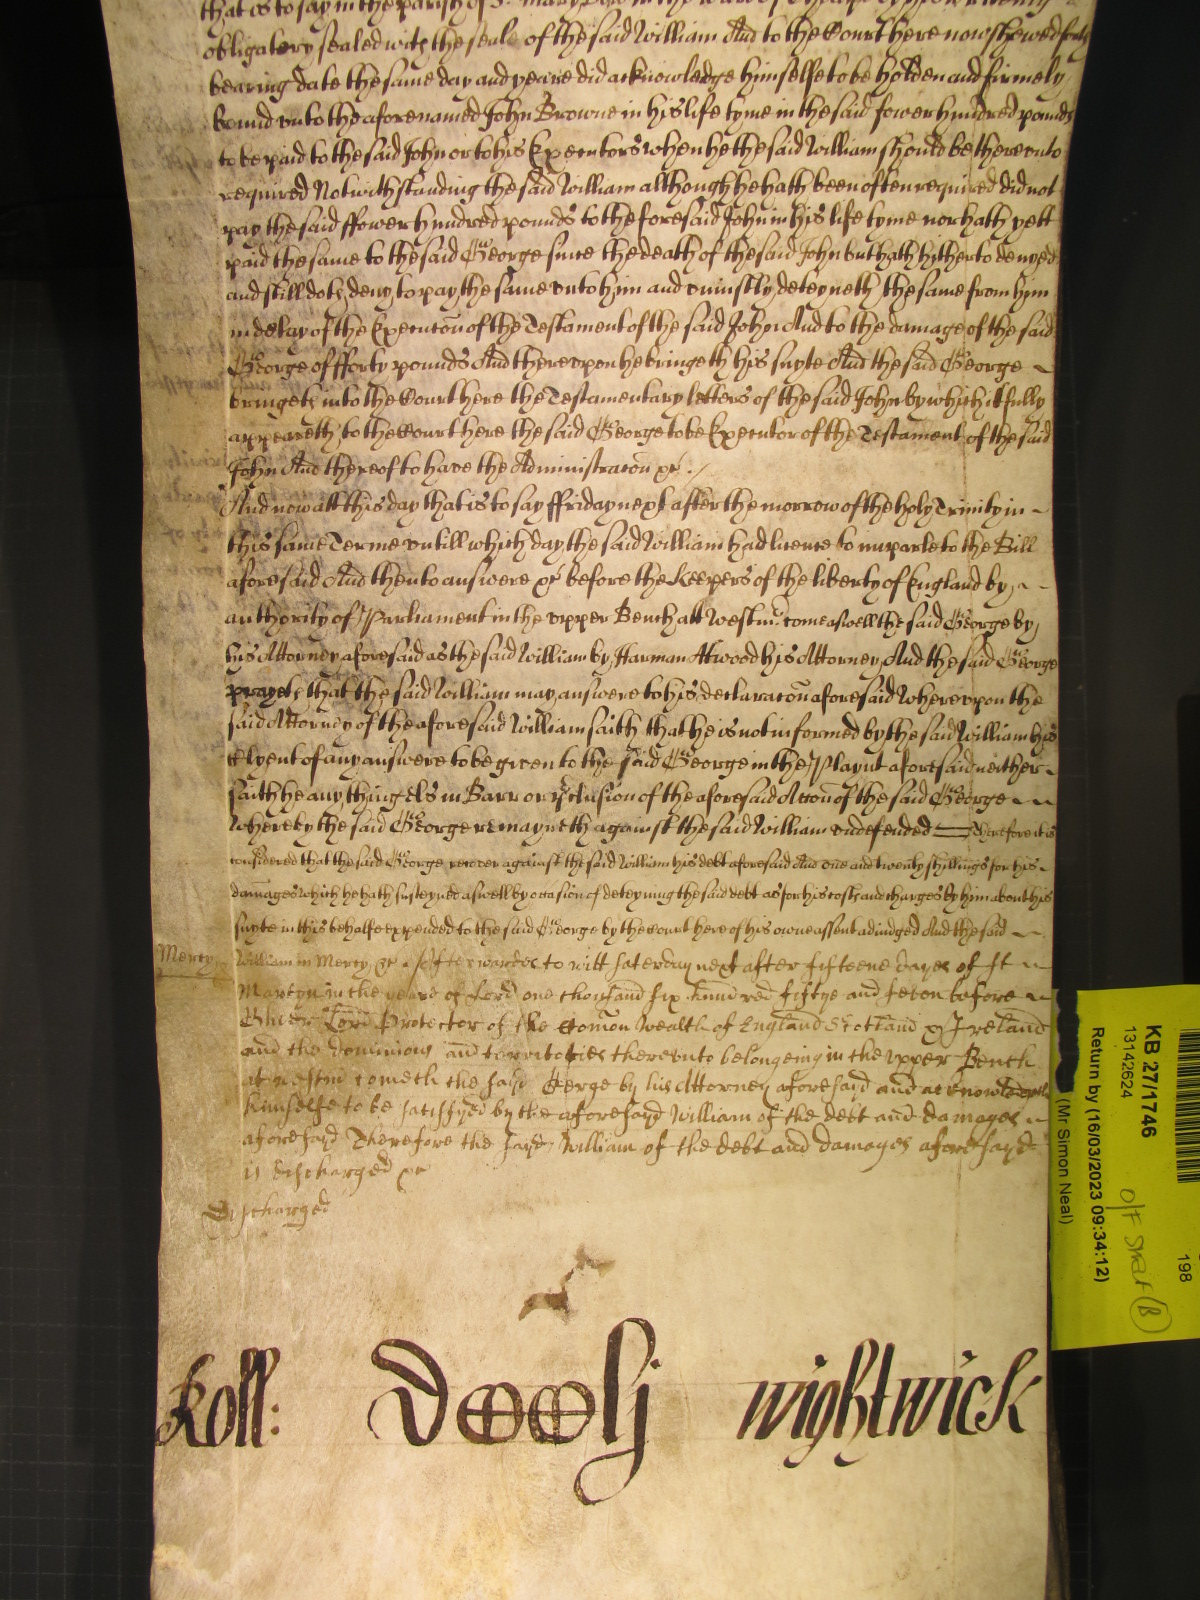 that is to say in the parish of St Mary
obligatory sealed with the seale of the said William And to the Court here now shewed forth
bearing date the same day and yeare did acknowledge himselfe to be holden and firmely
bound unto the aforenamed John Browne in his life tyme in the said fower hundred pounds
to be paid to the said John or to his Executors when he the said William should be thereunto
required Notwithstanding the said William although he hath been often required did not
pay the said ffower hundred pounds to the foresaid John in his life tyme nor hath yett
paid the same to the said George since the death of the said John but hath hitherto denyed
and still doth deny to pay the same unto him and uniustly deteyneth the same from him
in delay of the Execucōn of the Testament of the said John And to the damage of the said
George of fforty pounds And thereupon he bringeth his suyte And the said George
bringeth into the Court here the Testamentary letters of the said John by which it fully
appeareth to the Court here the said George to be Executor of the Testament of the said
John And thereof to have the Administracōn &c
And now att this day that is to say ffriday next after the morrow of the holy Trinity in
this same Terme untill which day the said William had licence to imparle to the Bill
aforesaid And then to answere &c before the Keepers of the liberty of England by
authority of Parliament in the upper Bench att Westmr come aswell the said George by
his Attorney aforesaid as the said William by Harman Atwood his Attorney And the said George
prayeth that the said William may answere to his declaracōn aforesaid Whereupon the
said Attorney of the aforesaid William saith that he is not informed by the said William his
Clyent of any answere to be given to the said George in the Playnt aforesaid neither
saith he any thing els in Barr or preclusion of the aforesaid Accōn of the said George
Whereby the said George remayneth against the said William undefended Therefore it is
considered that the said George recover against the said William his debt aforesaid And one and twenty shillings for his
damages which he hath susteyned aswell by occasion of deteyning the said debt as for his costs and charges by him about his
suyte in this behalfe expended to the said George by the Court here of his owne assent adiudged And the said
Mercy William in Mercy &c Afterwardes to witt saterday next after fifteene dayes of St
Martyn in the yeare of Lord one thousand six hundred fiftye and seven before
Oliver Lord Protector of the Comōn Wealth of England Scotland & Ireland
and the dominions and territories thereunto belongeing in the upper Bench
at westm cometh the sayd George by his Attorney aforesayd and acknowledgeth
himselfe to be satisfyed by the aforesayd William of the debt and damages
aforesayd Therefore the sayd William of the debt and damages aforesayd
is discharged &c
Discharged
Roll: wightwick
KB 27/1746
13142624
Return by (16/03/2023 09:34:12)
(Mr Simon Neal)
198
O/F
B